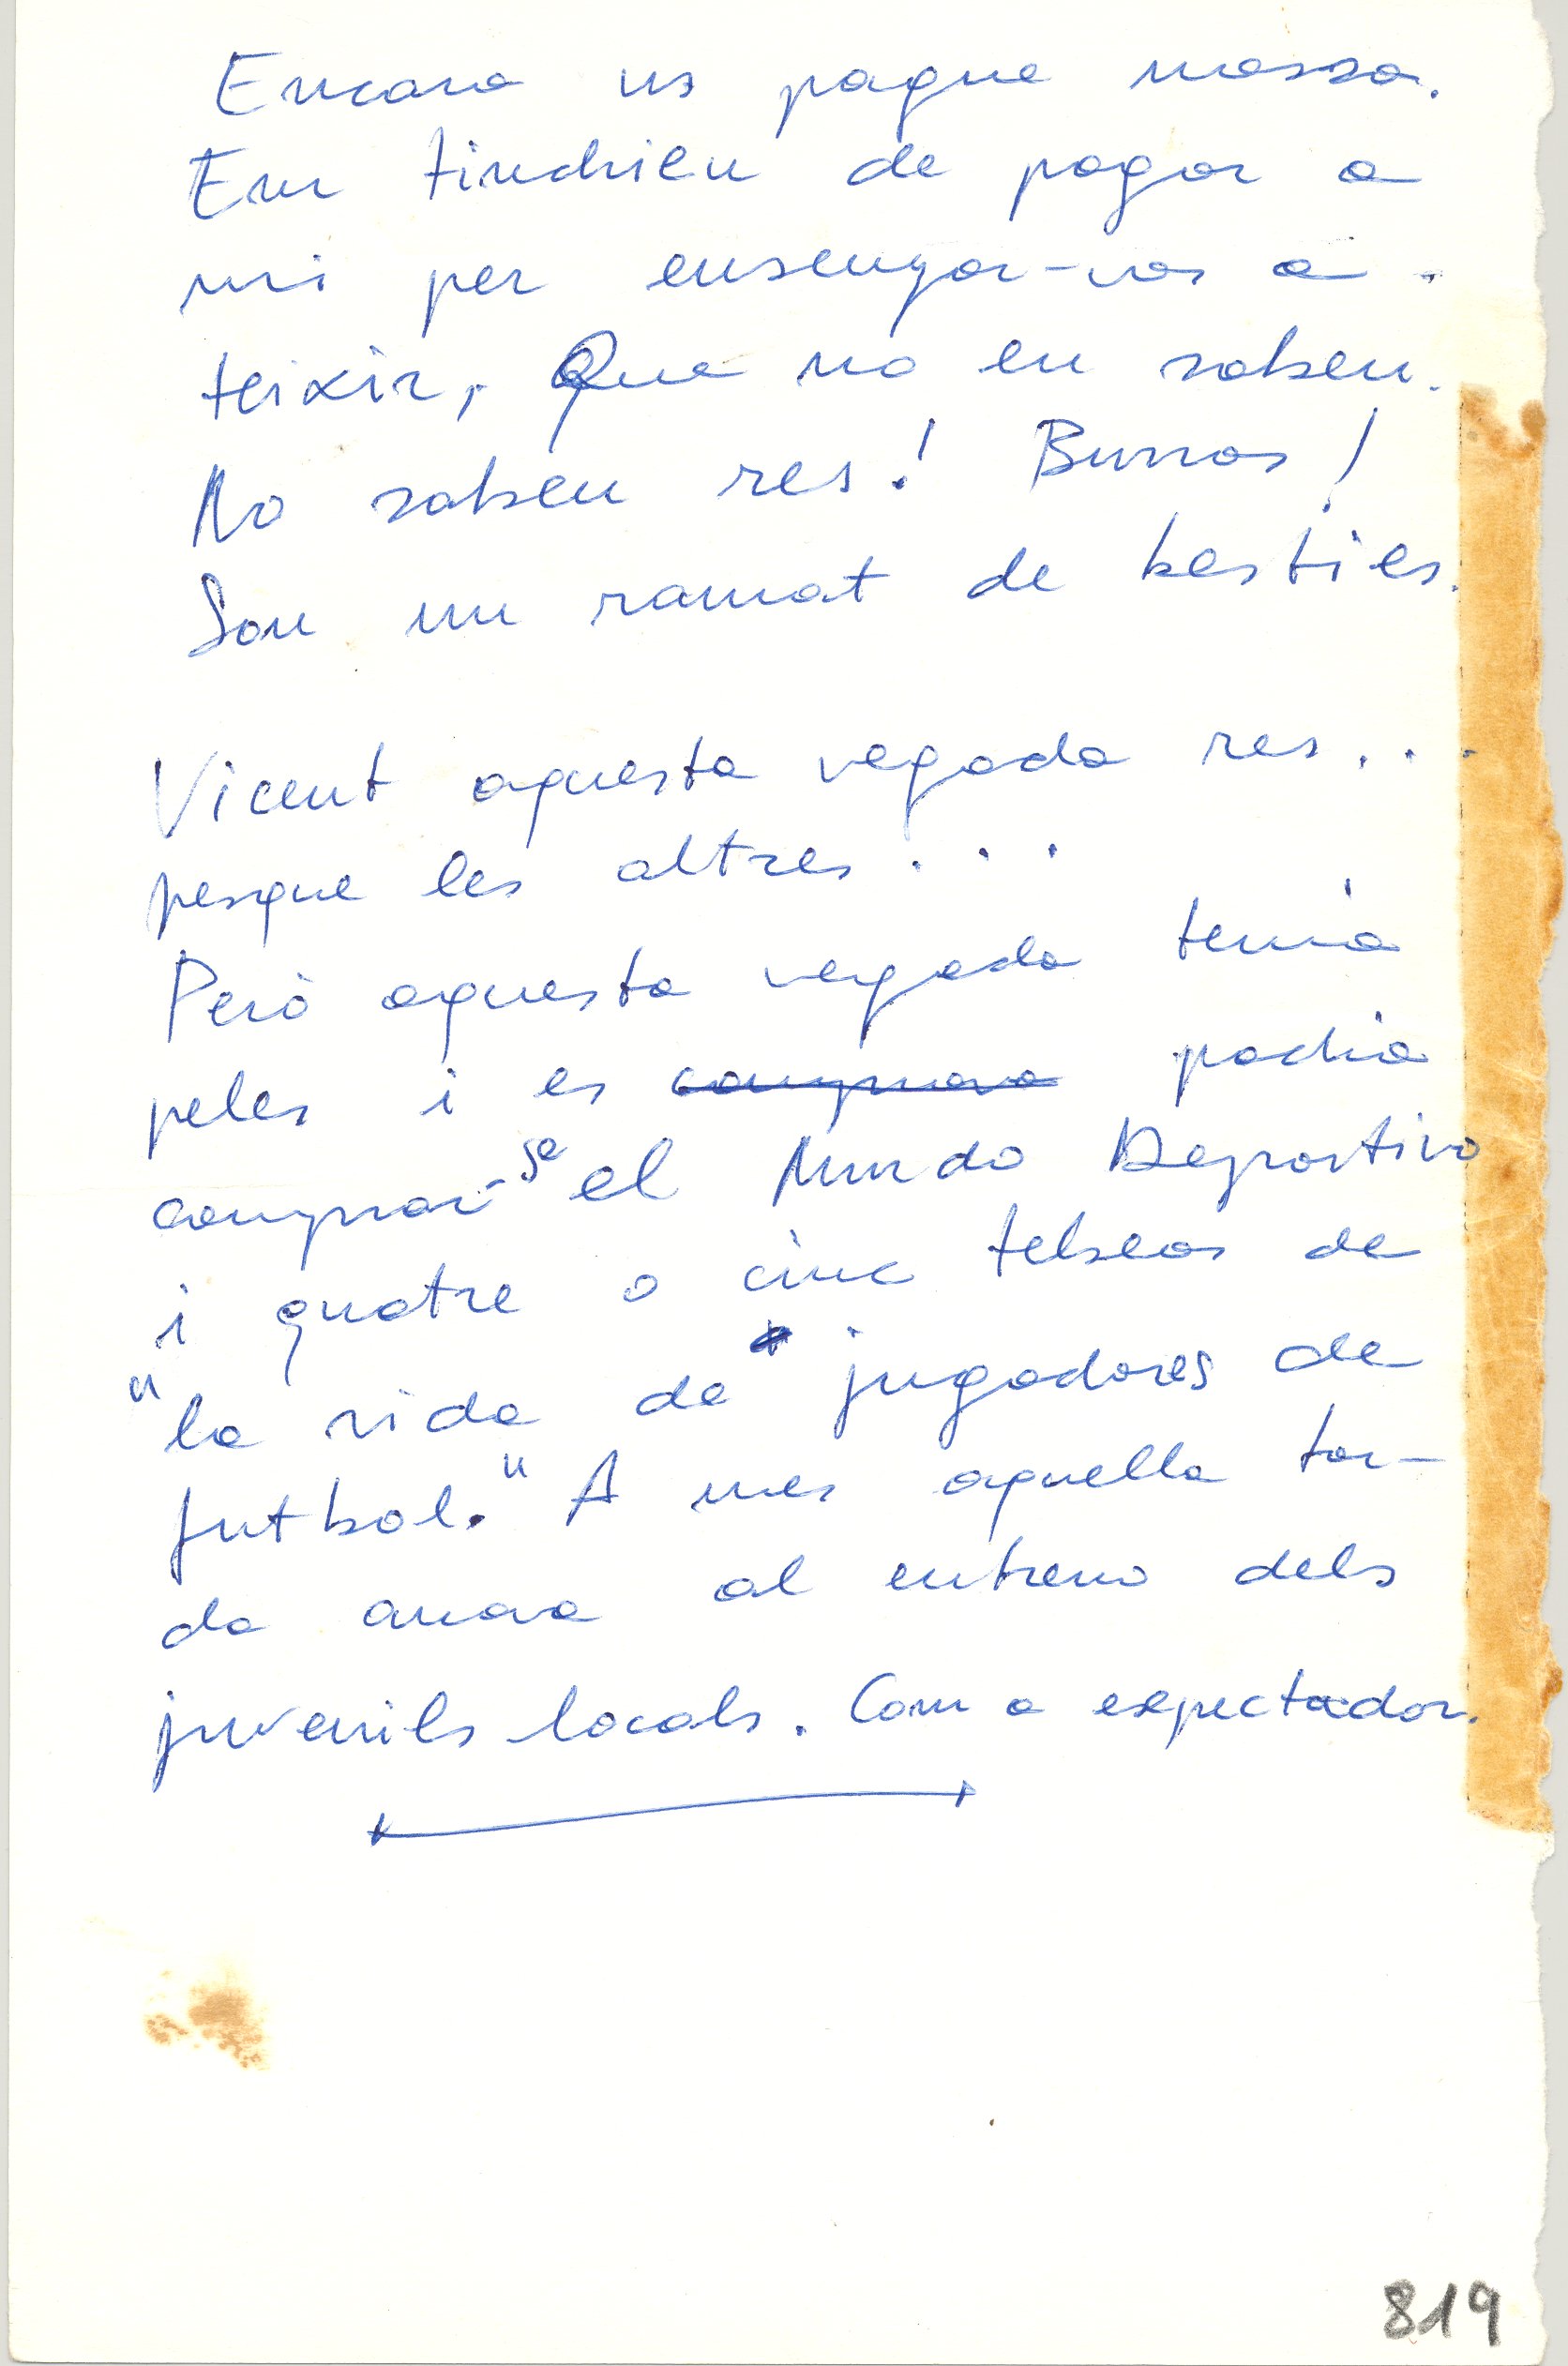 Encara us pague massa.
Em tindrieu de pagar a
mi per ensenyar-vos a
teixir, Que no en sabeu.
No sabeu res! Burros!
Sou un ramat de besties.
Vicent aquesta vegada res...
pesque les altres...
Però aquesta vegada tenia
peles i es comprava podia
comprar-se el Mundo Deportivo
i quatre o cinc tebeos de
"la vida de jugadores de
futbol." A mes aquella tar-
da anava al entreno dels
juvenils locals. Com a espectador.
819